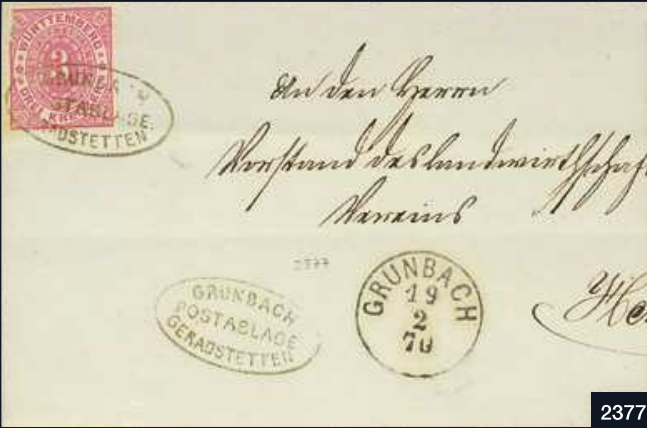 WÜRTTEMBERG
3
DREI KREUZER
GRUNBACH
POSTABLAGE
GERADSTETTEN
An den Herrn
Vorstand des landwirthschaf
Vereins
2377
GRUNBACH
POSTABLAGE
GERADSTETTEN
GRUNBACH
19
2
70
He
2377